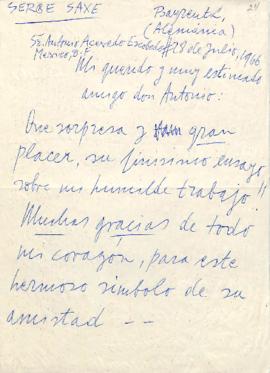 SERGE SAXE
24
Bayreuth,
(Alemania)
Sr. Antonio Acevedo Escobedo
28 de julio, 1966
Mexico, D.F.
Mi querido y muy estimado
amigo don Antonio:
Que sorpresa y gran
placer, su finisimo ensayo
sobre mi humilde trabajo!!
Muchas gracias de todo
mi corazón, para este
hermoso simbolo de su
amistad --